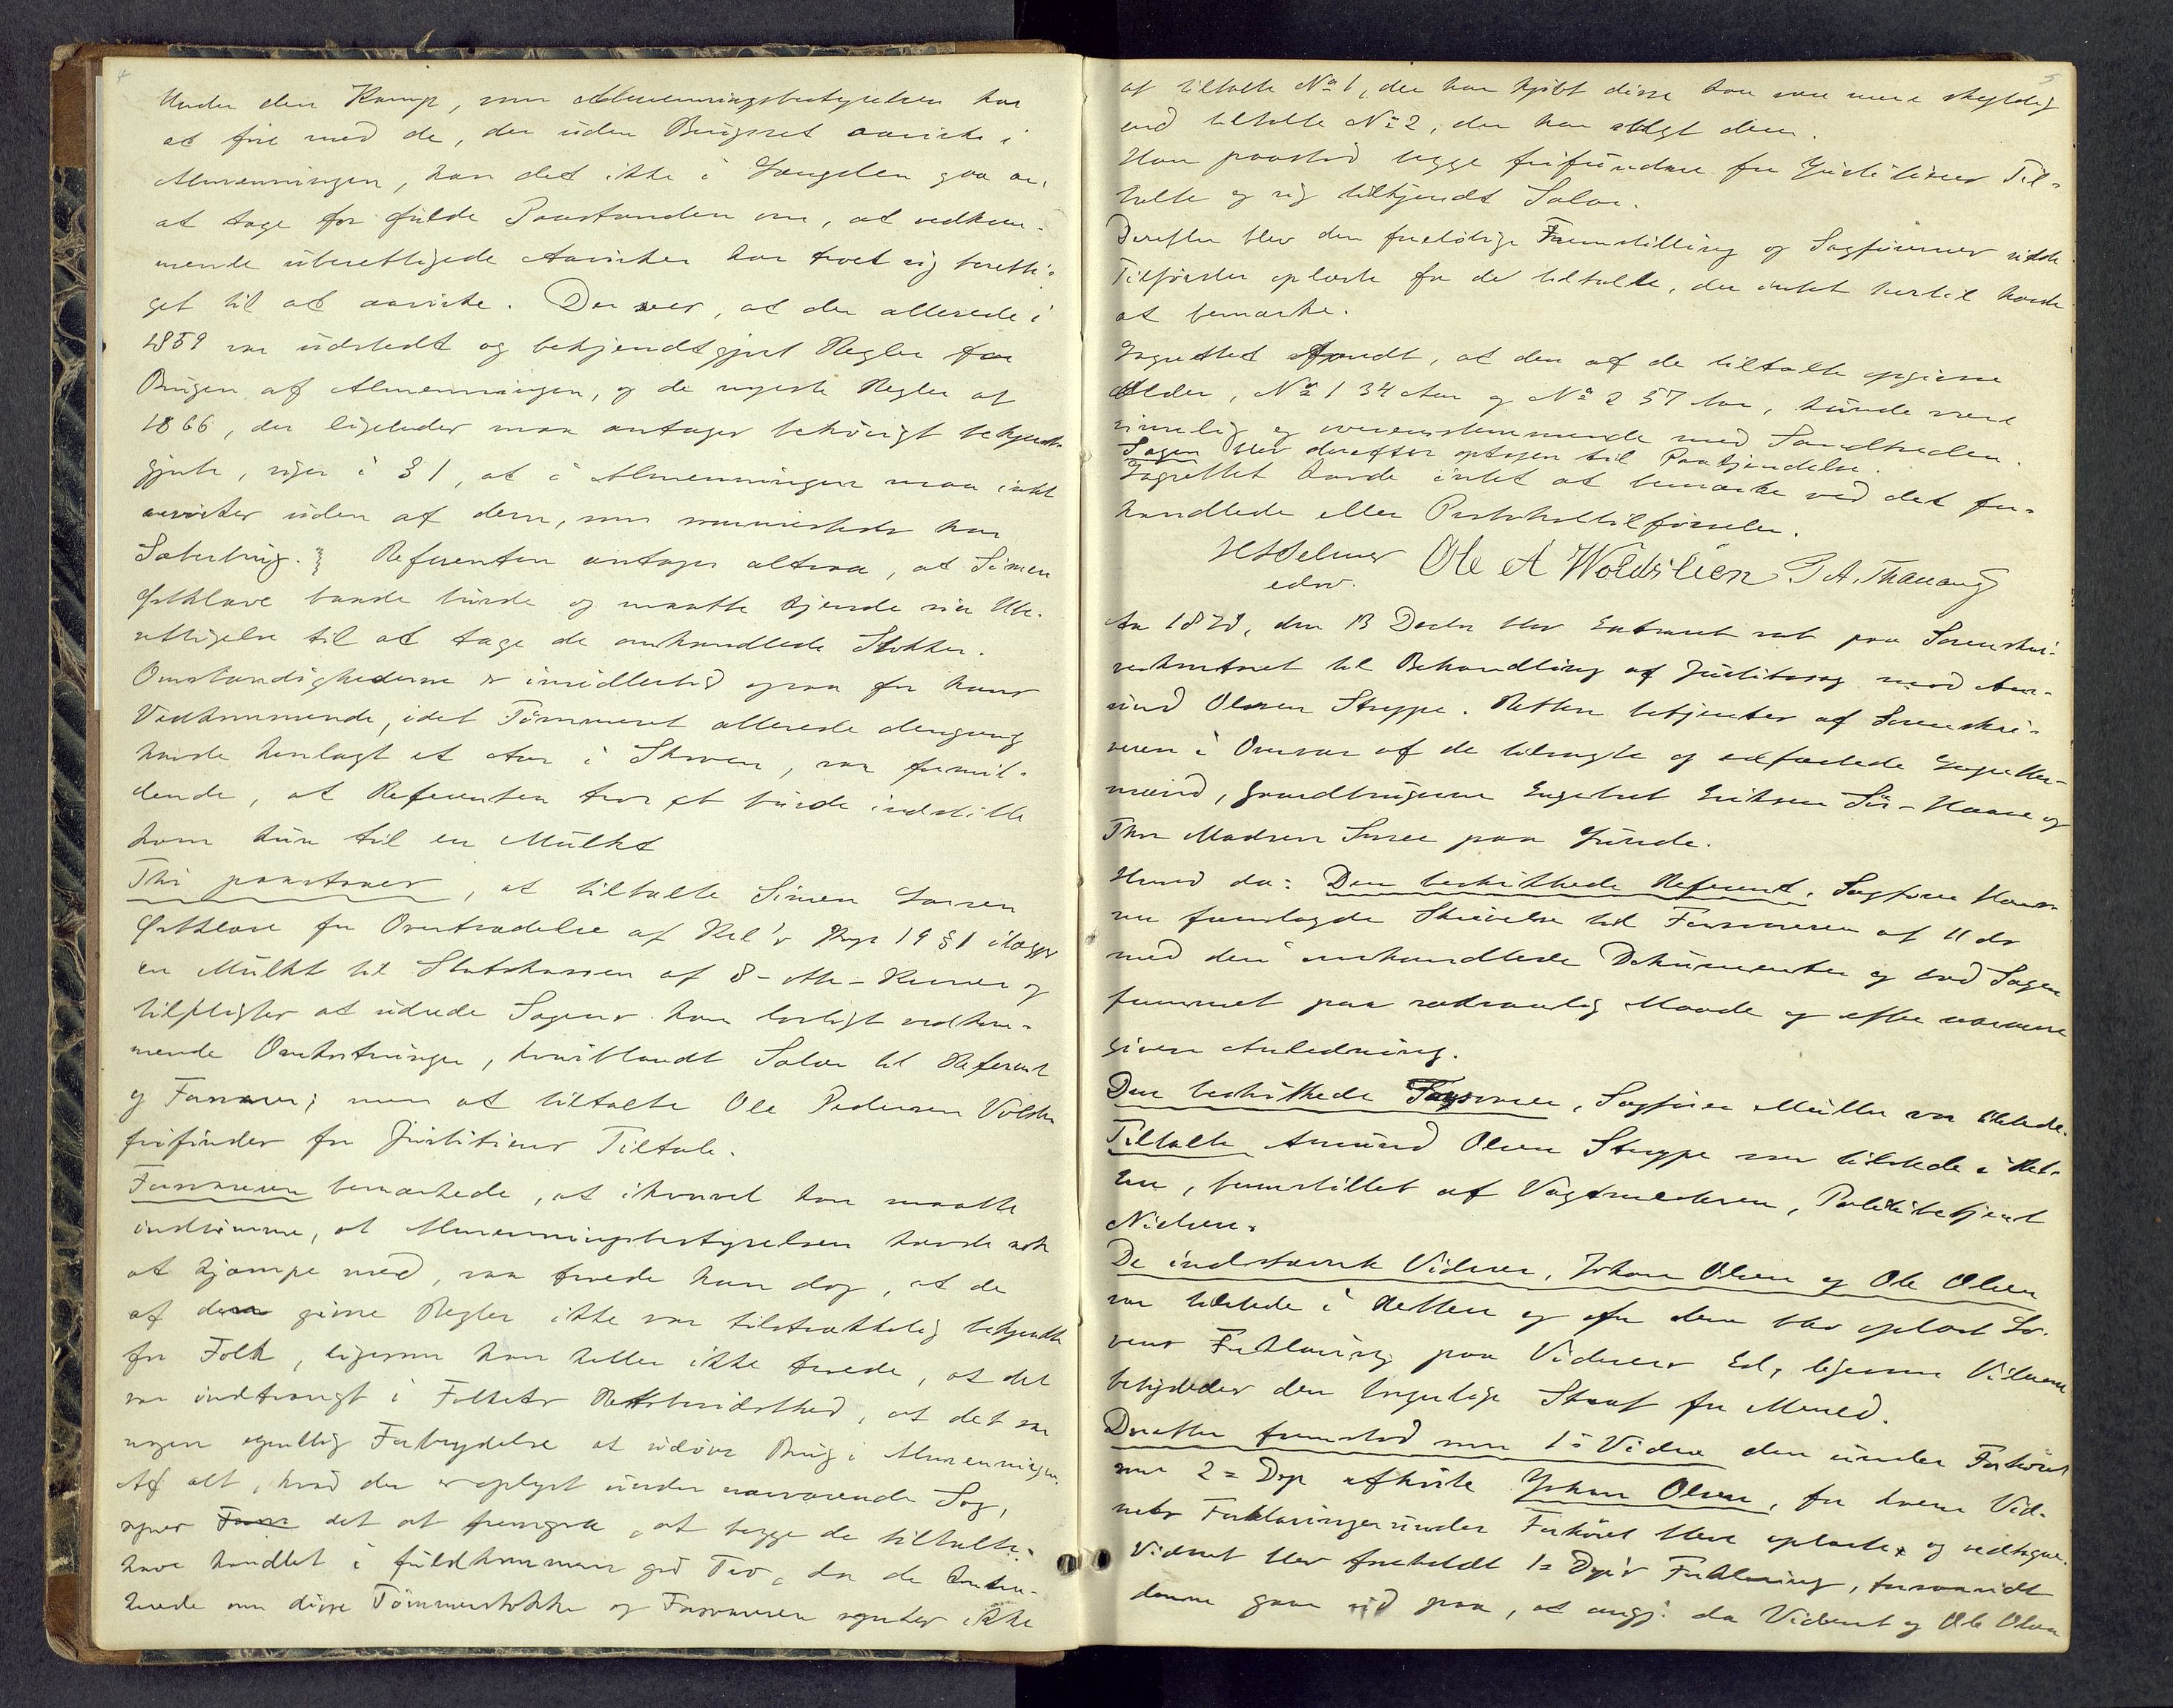 4
Under den Kamp, som Almenningsbestyrelsen har
at føre med de, der uden Brugsret aavirke i
Almenningen, kan det ikke i Længden gaa an,
at tage for gulde Paastanden om, at vedkom-
mende uberettigede Aavirker har troet sig beretti-
get til at aavirke. Der sees, at der allerede i
1859 var udstedt og bekjendtgjort Regler for
Brugen af Almenningen, og de nyeste Regler af
1866, der ligeledes maa antages behørigt bekjendt-
gjorte, siger i § 1, at i Almenningen maa intet
aavirkes uden af dem, som sammesteds har
Sæterbrug. Referenten antager altsaa, at Simen
Østklove baade burde og maatte kjende sin Ube-
rettigelse til at tage de omhandlede Stokker.
Omstændighederne er imidlertid ogsaa for hans
Vedkommende, idet Tømmeret allerede dengang
havde henlagt et Aar i Skoven, saa formil-
dende, at Referenten tror at burde indstille
ham kun til en Mulkt
Thi paastaaes, at tiltalte Simen Larsen
Østklove for Overtrædelse af Krl's Kap 19 § 1 ilægges
en Mulkt til Statskassen af 8 - otte - Kroner og
tilpligtes at udrede Sagens ham lovligt vedkom-
mende Omkostninger, hvoriblandt Salær til Referent
og Forsvarer; men at tiltalte Ole Pedersen Volden
frifindes for Justitiens Tiltale.
Forsvareren bemærkede, at ihvorvel han maatte
indrømme, at Almenningsbestyrelsen havde nok
at kjæmpe med, saa troede han dog, at de
af den givne Regler ikke var tilstrækkelig bekjendte
for Folk, ligesom han heller ikke troede, at det
var indtrængt i Folkets Retsbevidsthed, at det var
nogen egentlig Forbrydelse at udøve Brug i Almenningen.
Af alt, hvad der er oplyst under nærværende Sag,
synes det at fremgaa, at begge de tiltalte
have handlet i fuldkommen god Tro, da de
herede om disse Tømmerstokke og Forsvareren synes ikke
5
at tiltalte No 1, der har kjøbt disse kan være mere skyldig
end tiltalte No 2, der har solgt dem.
Han paastod begge frifundne for Justitiens Til-
tale og sig tilkjendt Salær.
Derefter blev den foreløbige Fremstilling og Sagførernes
Tilførsler oplæste for de tiltalte, der intet hertil havde
at bemærke.
Lagrettet fandt, at den af de tiltalte opgivne
Alder, No 1 34 Aar og No 2 57 Aar, kunde være
rimelig og overensstemmende med Sandheden.
Sagen blev derefter optagen til Paakjendelse.
Lagrettet havde intet at bemærke ved det for-
handlede eller Protokoltilførselen.
Ole A Woldslien
Aar 1878, den 13 Decbr blev Extraret sat paa Sorenskri-
verkontoret til Behandling af Justitssag mod Am-
und Olsen Strype. Retten betjentes af Sorenskri-
veren i Overvær af de tilsagte og edfæstede Lagrettes-
mænd, Gaardbrugerne Engebret Eriksen og
Thor Madsen paa Grinde.
Hvorda: Den beskikkede Referent, Sagfører
 fremlagde Skrivelse til Fogderiet af 11 ds
med deri omhandlede Dokumenter og bad Sagen
fremmet paa sædvanlig Maade og efter nærmere
given Anledning.
Den beskikkede Forsvarer, Sagfører Müller var tilstede.
Tiltalte Amund Olsen Strype var tilstede i Ret-
ten, fremstillet af Vagtmesteren, Politibetjent
Nielsen.
De indstævnte Vidner, Johan Olsen og Ole Olsen
var tilstede i Retten og for dem blev oplæst Lo-
vens Forklaring paa Vidners Ed, ligesom Vidnerne
betydedes den borgerlige Straf for Mened.
Derefter fremstod som 1ste Vidne den under Forhøret
som 2den Dep afhørte Johan Olsen, for hvem Vid-
nets Forklaringer under Forhøret bleve oplæste og vedtagne.
Vidnet blev foreholdt 1ste Dep's Forklaring, forsaavidt
denne gaar ud paa, at da Vidnet og Ole Olsen